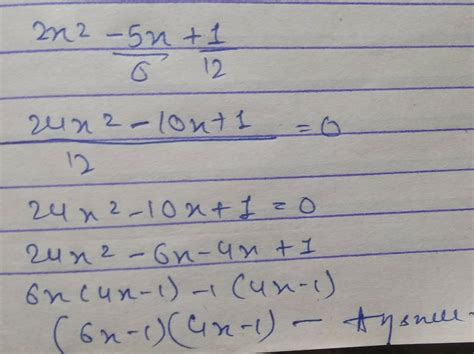 2x² - 5x/6 + 1/12
24x² - 10x + 1 / 12 = 0
24x² - 10x + 1 = 0
24x² - 6x - 4x + 1
6x (4x-1) - 1 (4x-1)
(6x-1) (4x-1) -